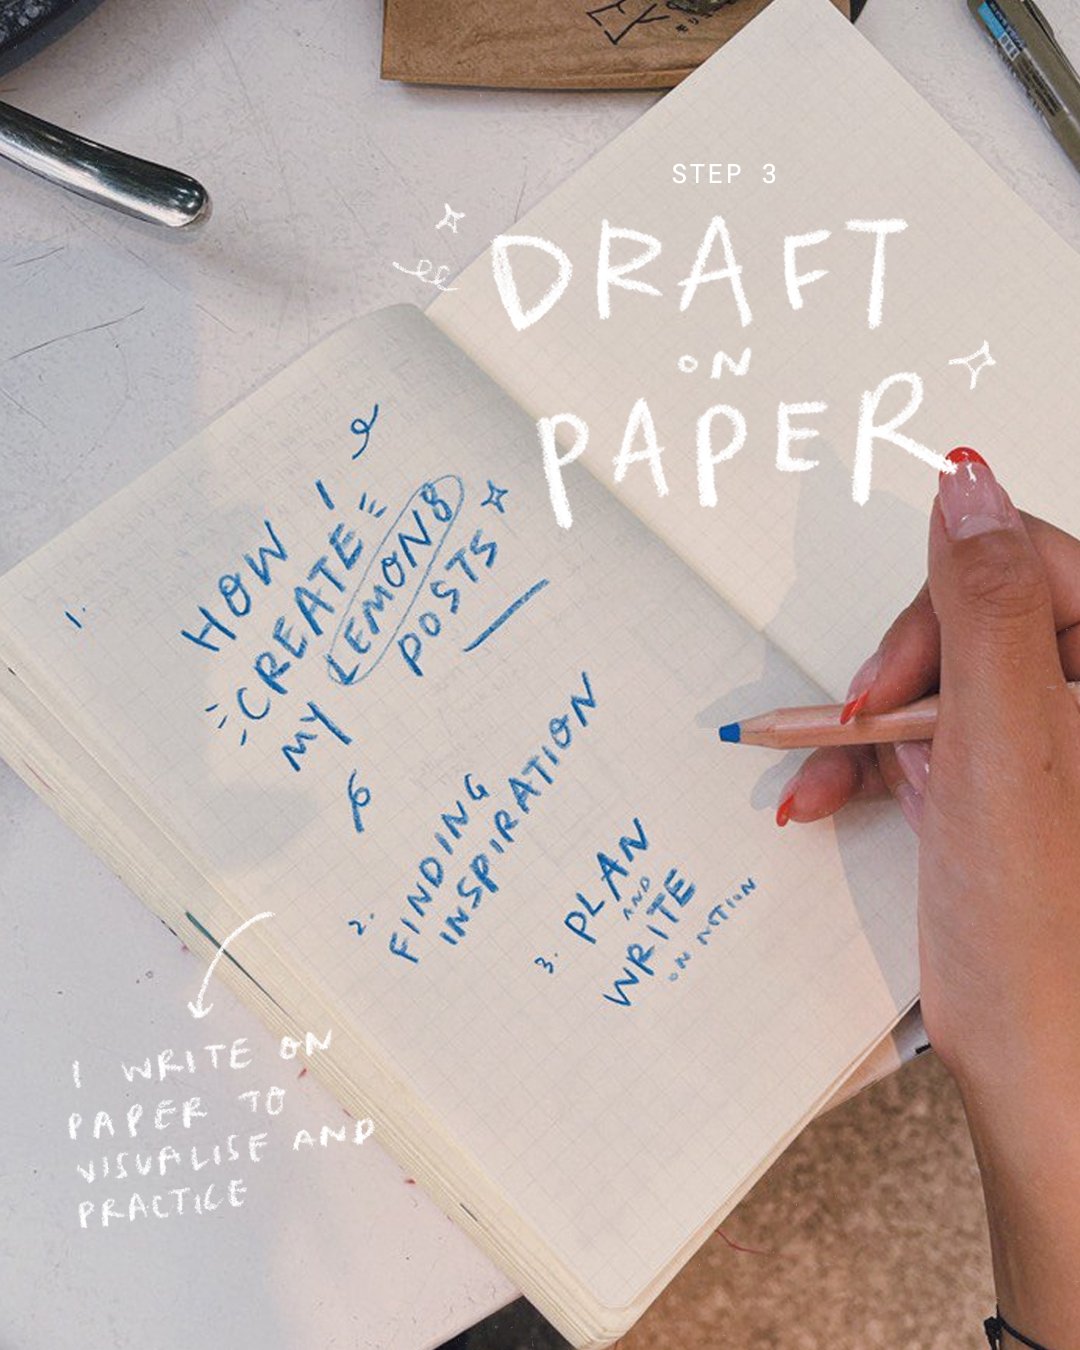 STEP 3
DRAFT
ON
PAPER
1.
HOW I
CREATE
MY LEMON8
POSTS
2.
FINDING
INSPIRATION
3.
PLAN
AND
WRITE
ON NOTION
I WRITE ON
PAPER TO
VISUALISE AND
PRACTICE